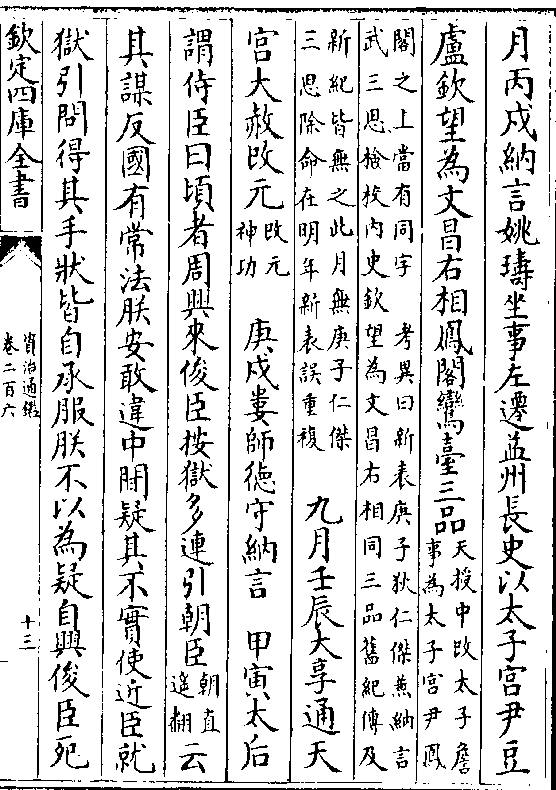 月丙戍納言姚璹坐事左遷益州長史以太子宫尹豆
盧欽望為文昌右相鳳閣鸞臺三品天授中改太子詹
事為太子宫尹鳳
閣之上當有同字　考異曰新表庚子狄仁傑兼納言
武三思檢校内史欽望為文昌右相同三品舊紀傳及
新紀皆無之此月無庚子仁傑
三思除命在明年新表誤重複　九月壬辰大享通天
宫大赦改元改元
神功　庚戍婁師德守納言　甲寅太后
謂侍臣曰頃者周興來俊臣按獄多連引朝臣朝直
遥翻云
其謀反國有常法朕安敢違中間疑其不實使近臣就
獄引問得其手狀皆自承服朕不以為疑自興俊臣死
欽定四庫全書
資治通鑑
卷二百六
十三